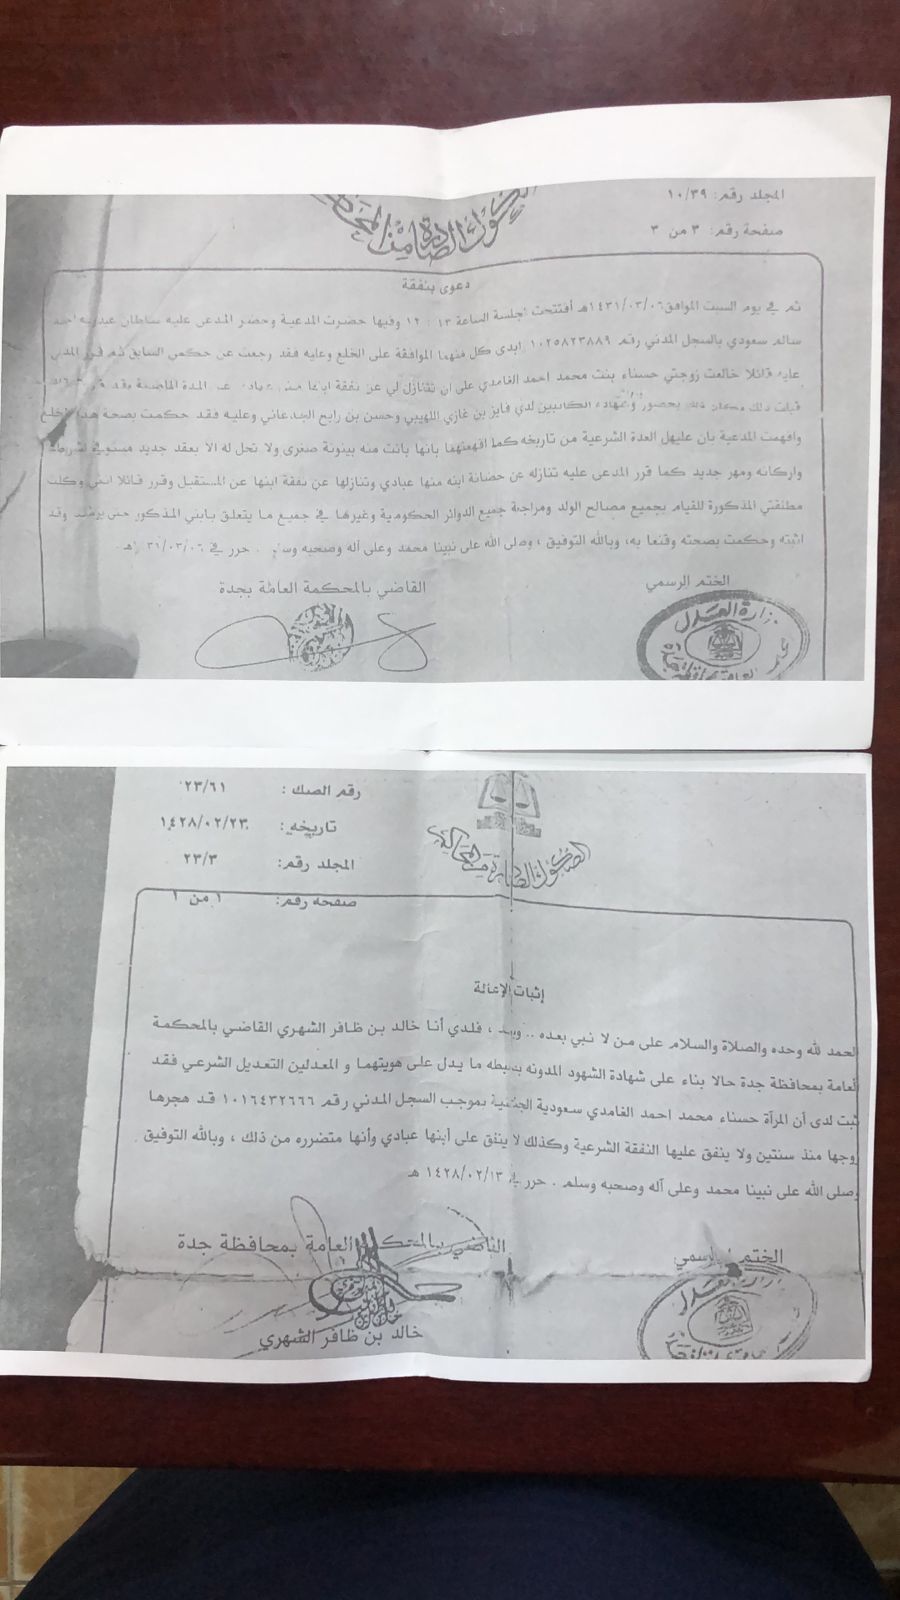 المجلد رقم: ١٠/٣٩
صفحة رقم: ٣ من ٣
الصكوك الصادرة من المحاكم
دعوى بنفقة
ثم في يوم السبت الموافق ١٤٣١/٠٣/٠٦هـ أفتتحت الجلسة الساعة ١٣ : ١٢ وفيها حضرت المدعية وحضر المدعى عليه سلطان
سالم سعودي بالسجل المدني رقم ١٠٢٥٨٢٣٨٨٩ ابدى كل منهما الموافقة على الخلع وعليه فقد رجعت عن حكمي السابق ثم قرر المدعى
عليه قائلا خالعت زوجتي حسناء بنت محمد احمد الغامدي على ان تتنازل لي عن نفقة ابنها مني عبادي عن المدة الماضية وقد
قبلت ذلك وكان ذلك بحضور وشهادة الكاتبين لدي فايز بن غازي اللهيبي وحسن بن رابح الجدعاني وعليه فقد حكمت بصحة هذا الخلع
وافهمت المدعية بان عليهل العدة الشرعية من تاريخه كما افهمتهما بانها بانت منه بينونة صغرى ولا تحل له الا بعقد جديد مستوفي لشروطه
واركانه ومهر جديد كما قرر المدعى عليه تنازله عن حضانة ابنه منها عبادي وتنازلها عن نفقة ابنها عن المستقبل وقرر قائلا انني وكلت
مطلقتي المذكورة للقيام بجميع مصالح الولد ومراجعة جميع الدوائر الحكومية وغيرها في جميع ما يتعلق بابني المذكور حتى يرشد وقد
اثبته وحكمت بصحته وقنعا به، وبالله التوفيق ، وصلى الله على نبينا محمد وعلى آله وصحبه وسلم . حرر في ٣١/٠٣/٠٦ هـ
الختم الرسمي
القاضي بالمحكمة العامة بجدة
وزارة العدل
رقم الصك : ٢٣/٦١
تاريخه: ١٤٢٨/٠٢/٢٣
المجلد رقم: ٢٣/٣
صفحه رقم: ١ من ١
الصكوك الصادرة من المحاكم
إثبات الإعالة
الحمد لله وحده والصلاة والسلام على من لا نبي بعده .. وبعد ، فلدي أنا خالد بن ظافر الشهري القاضي بالمحكمة
العامة بمحافظة جدة حالا بناء على شهادة الشهود المدونه بضبطه ما يدل على هويتهما و المعدلين التعديل الشرعي فقد
ثبت لدى أن المرآة حسناء محمد احمد الغامدي سعودية الجنسية بموجب السجل المدني رقم ١٠١٦٤٣٢٦٦٦ قد هجرها
زوجها منذ سنتين ولا ينفق عليها النفقة الشرعية وكذلك لا ينفق على أبنها عبادي وأنها متضرره من ذلك ، وبالله التوفيق
وصلى الله على نبينا محمد وعلى آله وصحبه وسلم . حرر في ١٤٢٨/٠٢/١٣ هـ
الختم الرسمي
القاضي بالمحكمة العامة بمحافظة جدة
خالد بن ظافر الشهري
وزارة العدل